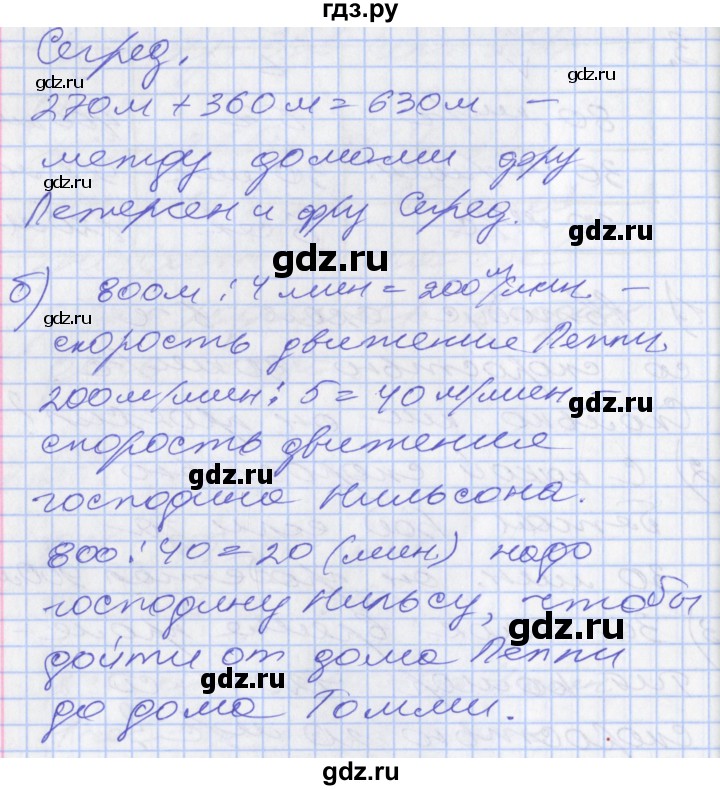 гдз.ру
Сегред.
gdz.ru
270м + 360м = 630м —
между домами фру
gdz.ru
Петерсен и фру Сегред.
gdz.ru
gdz.ru
б) 800м : 4 мин = 200 м/мин. —
gdz.ru
скорость движения Пеппи.
200м/мин : 5 = 40 м/мин —
gdz.ru
скорость движения
gdz.ru
господина Нильсона.
800 : 40 = 20 (мин) надо
gdz.ru
господину Нильсу, чтобы
gdz.ru
дойти от дома Пеппи
gdz.ru
до дома Томми.
gdz.ru